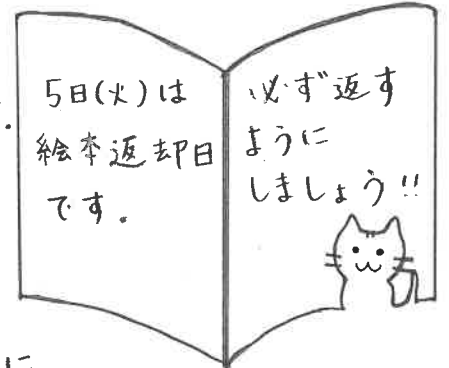 5日(火)は
絵本返却日
です.
必ず返す
ように
しましょう!!
に